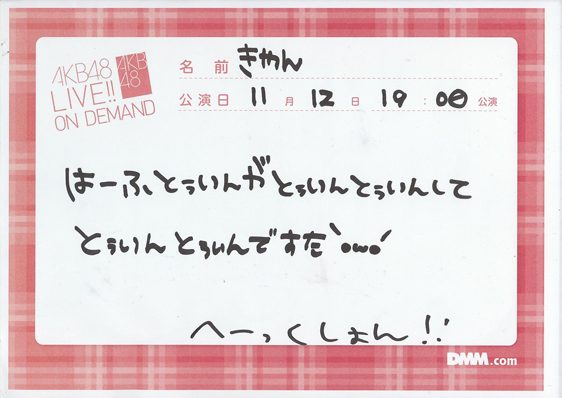 AKB48
LIVE!!
ON DEMAND
AKB
48
名前 きゃん
公演日 11月12日 19:00公演
はーふとぅいんがとぅいんとぅいんして
とぅいんとぅいんですた`ω´
へーっくしょん!!
DMM.com